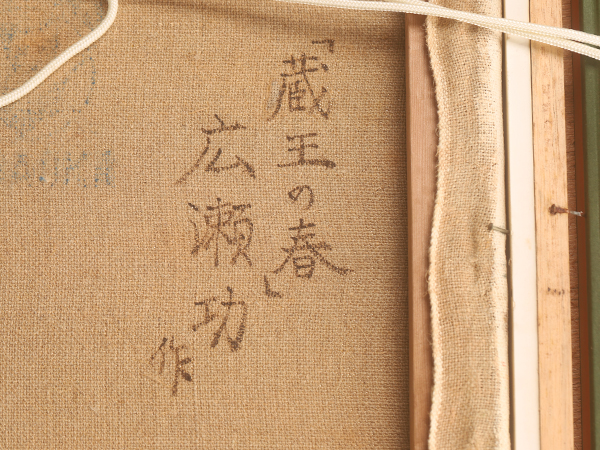 「蔵王の春」
広瀬功
作